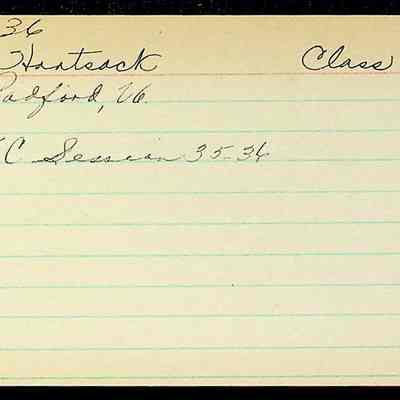 36
Hartsock Class
Radford, Va.
C Session 35-36